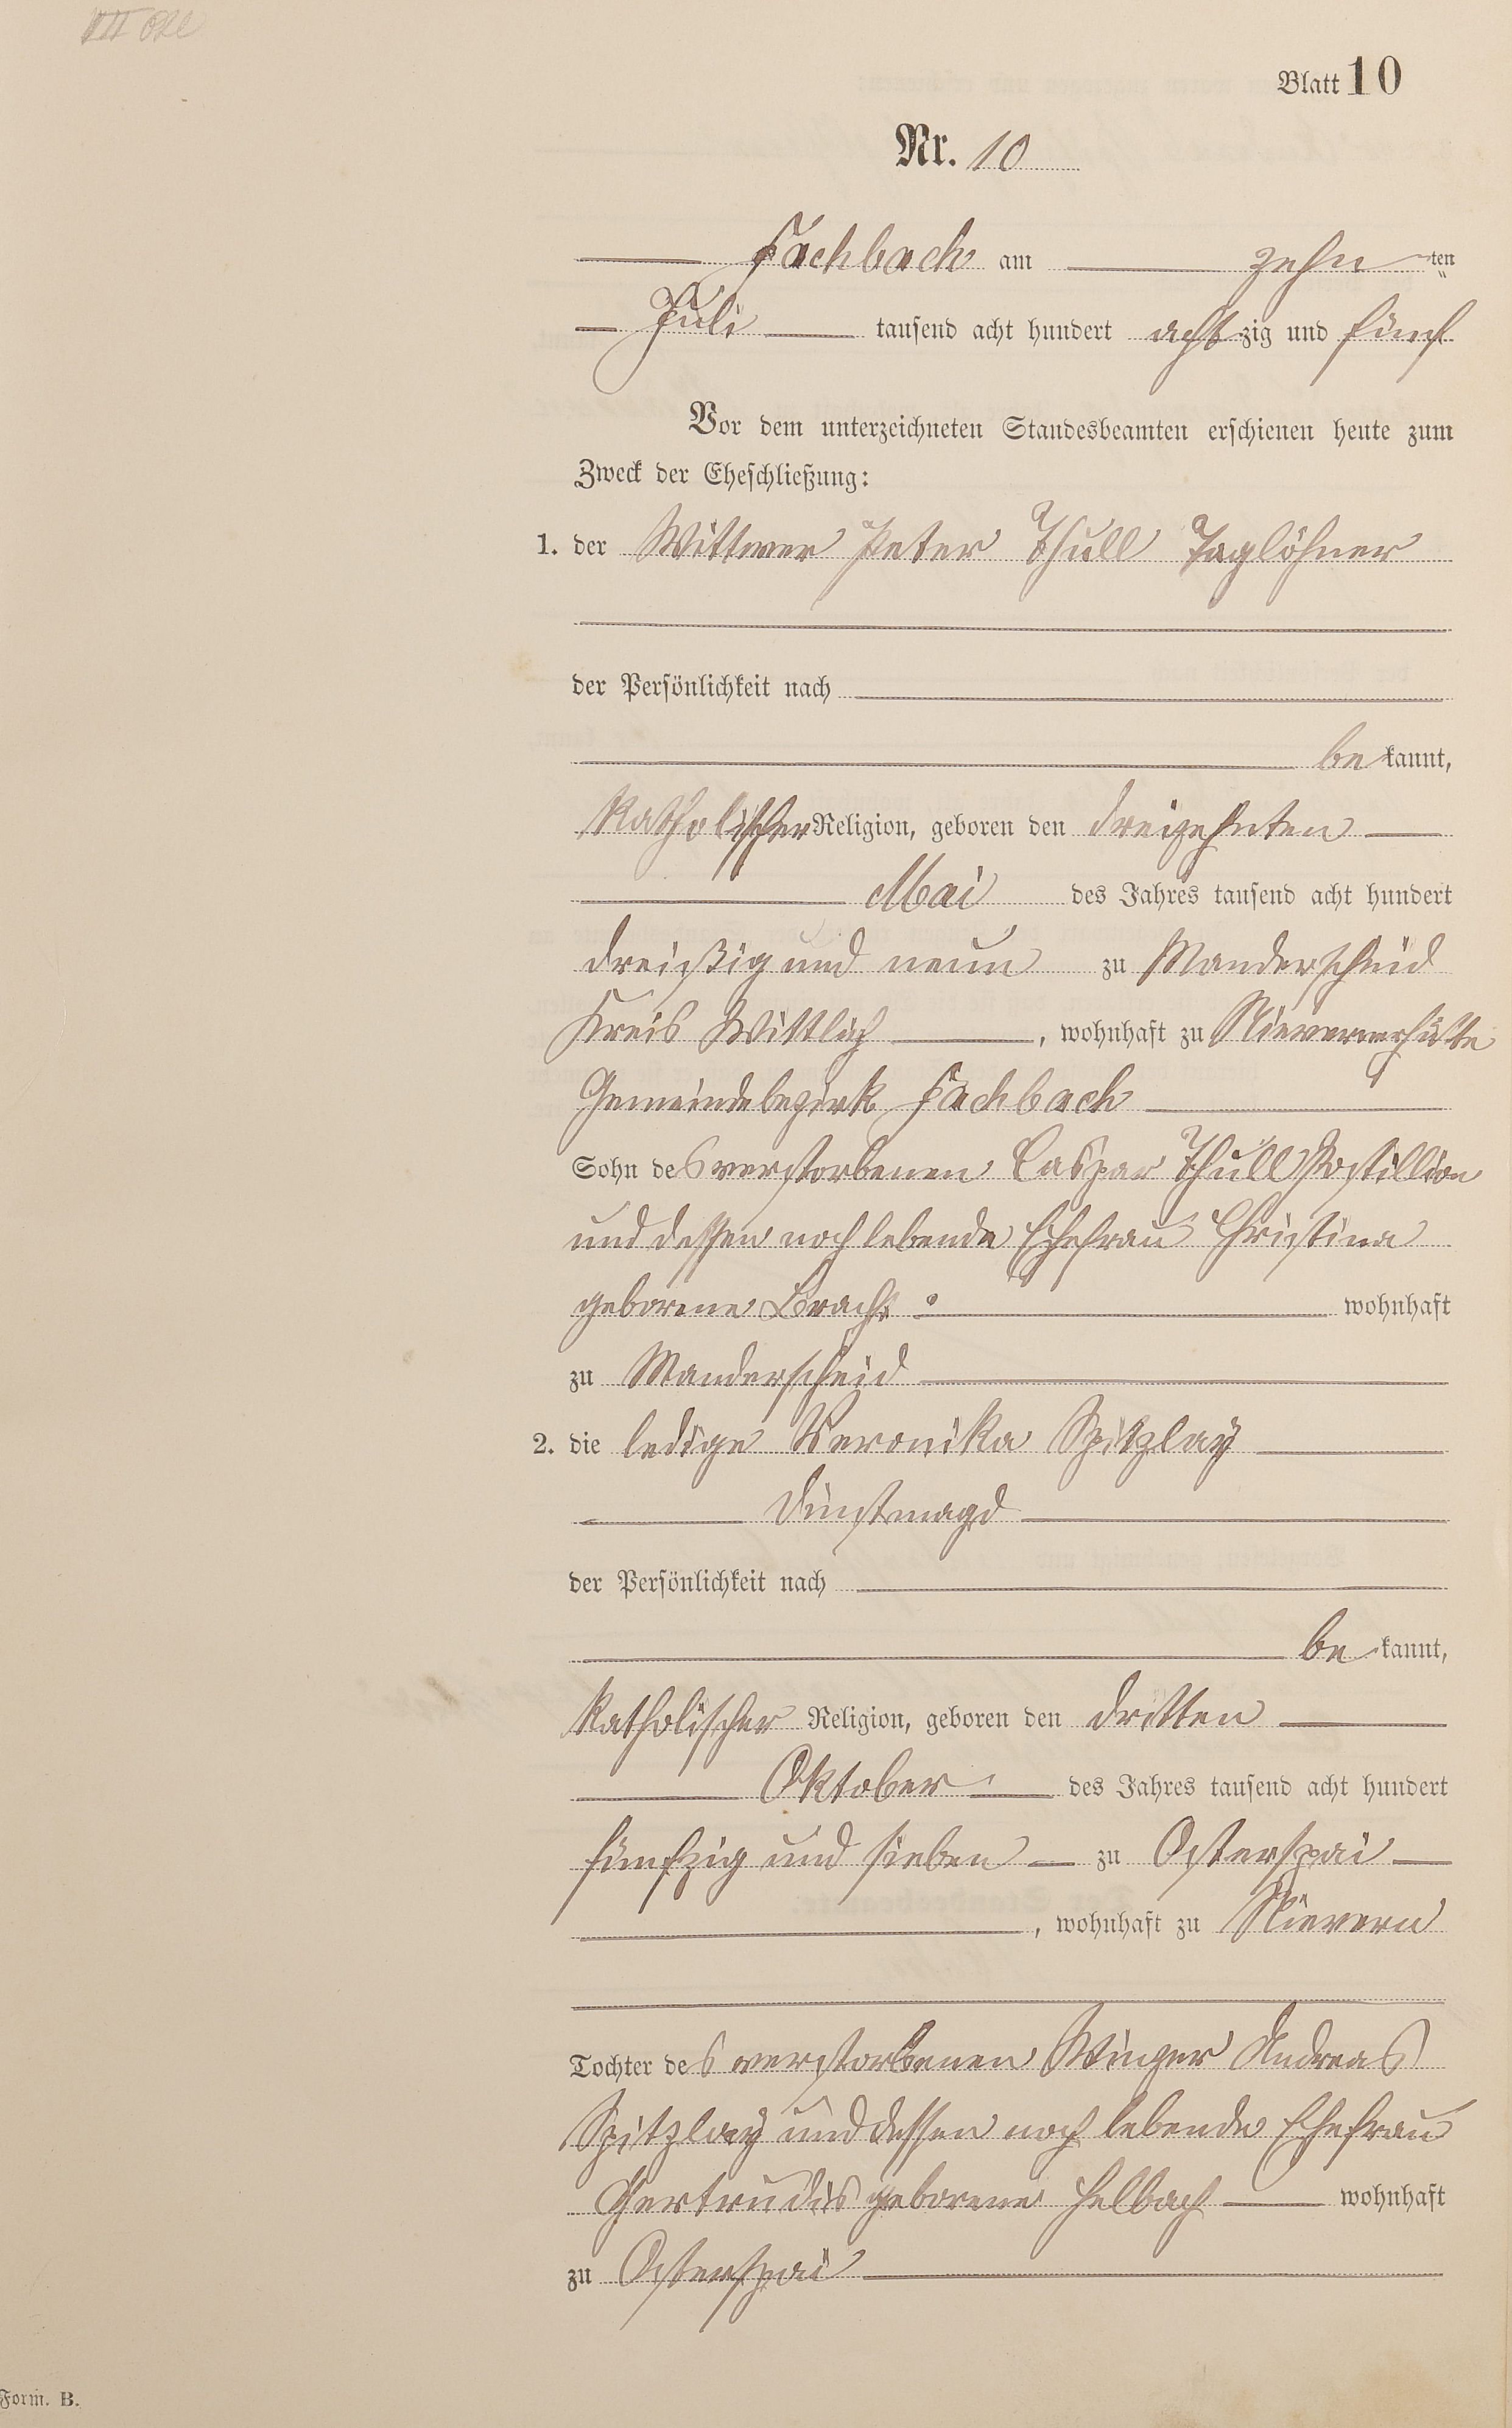 Blatt 10
Nr. 10
Fachbach am zehn ten
Juli tausend acht hundert achtzig und fünf
Vor dem unterzeichneten Standesbeamten erschienen heute zum
Zweck der Eheschließung:
1. der Wittwer Peter Thull Taglöhner
der Persönlichkeit nach
be kannt,
Katholischer Religion, geboren den dreizehnten
Mai des Jahres tausend acht hundert
dreißig und neun zu Manderscheid
Kreis Wittlich, wohnhaft zu Nievernerhütte
Gemeindebezirk Fachbach
Sohn des verstorbenen Caspar Thull Postillion
und dessen noch lebende Ehefrau Christina
geborene Bracht wohnhaft
zu Manderscheid
2. die ledige Veronika Spitzlay
Dienstmagd
der Persönlichkeit nach
be kannt,
Katholischer Religion, geboren den dritten
Oktober des Jahres tausend acht hundert
fünfzig und sieben zu Osterspai
, wohnhaft zu Nievern
Tochter des verstorbenen Winzer Andreas
Spitzlay und dessen noch lebende Ehefrau
Gertrudis geborene Helbach wohnhaft
zu Osterspai
Form. B.